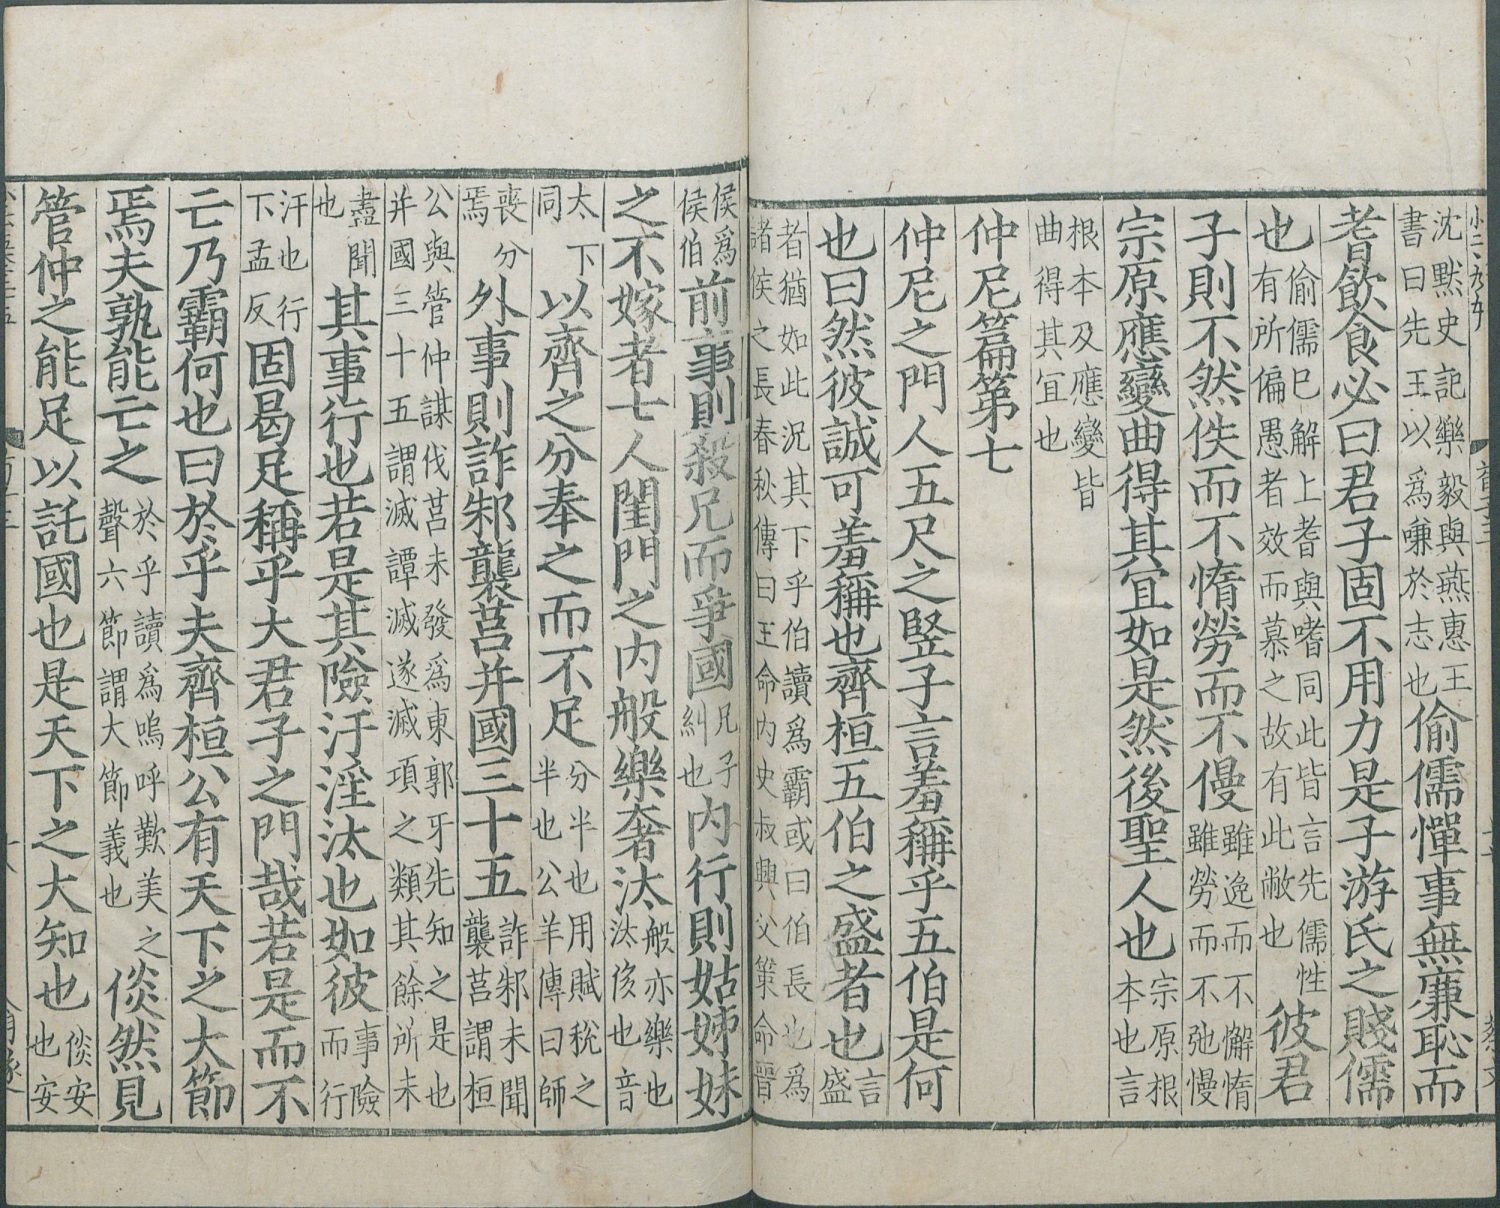 沈默史記樂毅與燕惠王
書曰先王以爲嗛於志也偷儒憚事無廉恥而
耆飲食必曰君子固不用力是子游氏之賤儒
也偷儒已解上耆與嗜同此皆言先儒性
有所偏愚者效而慕之故有此敝也彼君
子則不然佚而不惰勞而不僈雖逸而不懈惰
雖勞而不弛慢
宗原應變曲得其宜如是然後聖人也宗原根
本也言
根本及應變皆
曲得其宜也
仲尼篇第七
仲尼之門人五尺之豎子言羞稱乎五伯是何
也曰然彼誠可羞稱也齊桓五伯之盛者也言
盛
者猶如此況其下乎伯讀爲霸或曰伯長也爲
諸侯之長春秋傳曰王命內史叔興父策命晉
侯爲
侯伯前事則殺兄而爭國兄子
糾也內行則姑姊妹
之不嫁者七人閨門之內般樂奢汰般亦樂也
汰侈也音
太 下
同以齊之分奉之而不足分半也用賦稅之
半也公羊傳曰師
喪分
焉外事則詐邾襲莒并國三十五詐邾未聞
襲莒謂桓
公與管仲謀伐莒未發爲東郭牙先知之是也
并國三十五謂滅譚滅遂滅項之類其餘所未
盡聞
也其事行也若是其險汙淫汰也如彼事險
而行
汙也行
下孟反固曷足稱乎大君子之門哉若是而不
亡乃霸何也曰於乎夫齊桓公有天下之大節
焉夫孰能亡之於乎讀爲嗚呼歎美之
聲六節謂大節義也倓然見
管仲之能足以託國也是天下之大知也倓安
也安